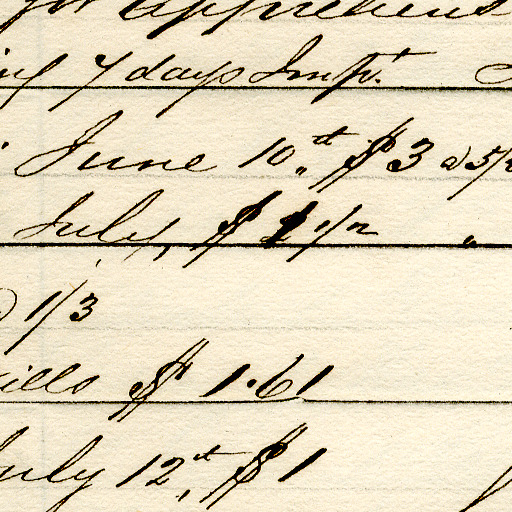 for apprehens
ing 7 days Impt.
June 10th $3 @ 5/
July, $ 1 1/2 "
1/3
ills $ 1.61
July 12th $1